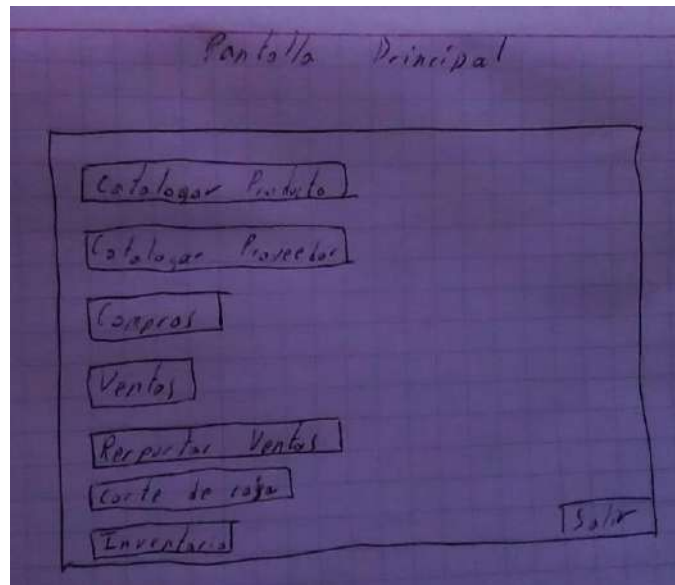 Pantalla Principal
Catalogar Producto
Catalogar Proveedor
Compras
Ventas
Rerportar Ventas
Corte de caja
Inventario
Salir